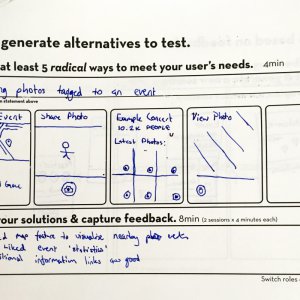 generate alternatives to test.
at least 5 radical ways to meet your user's needs. 4min
photos tagged to an event
statement above
Event
Share Photo
Example Concert
10.2K PEOPLE
Latest Photos:
View Photo
your solutions & capture feedback. 8min (2 sessions x 4 minutes each)
map feature to visualize nearby
Liked event 'statistics'
information links good
Switch roles